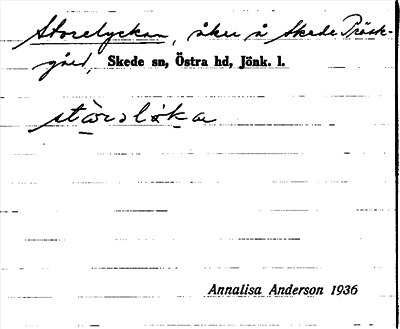 Storelyckan, åker å Skede Präst-
gård, Skede sn, Östra hd, Jönk. l.
Annalisa Anderson 1936